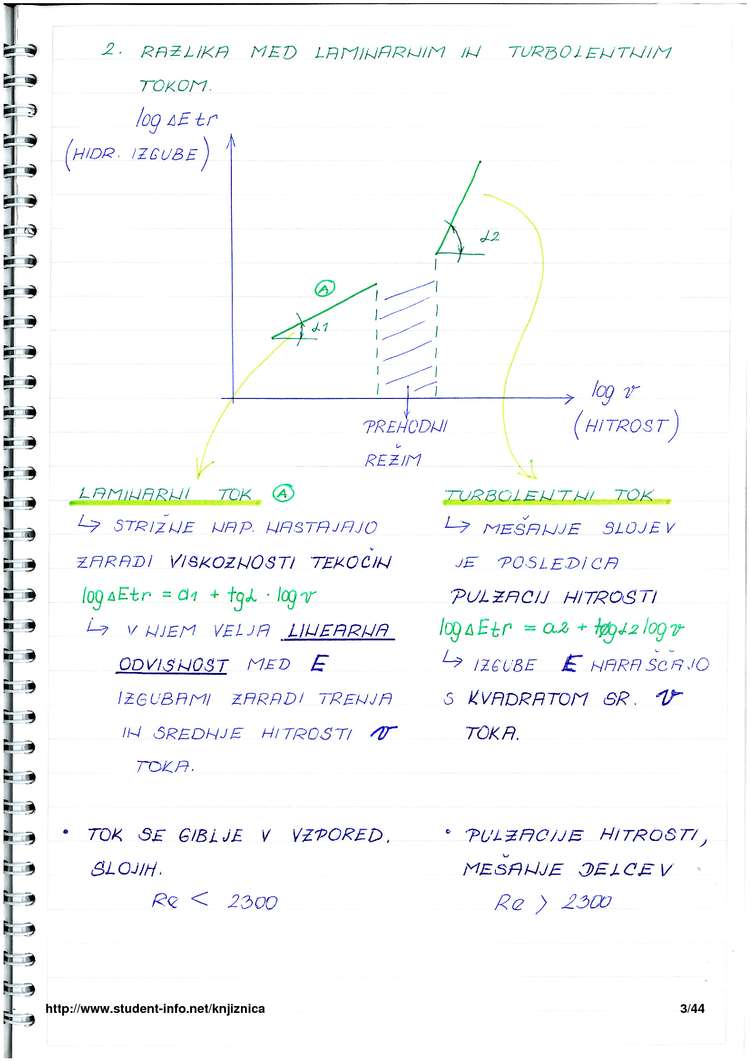 2. RAZLIKA MED LAMINARNIM IN TURBOLENTNIM
TOKOM.
log ΔEtr
(HIDR. IZGUBE)
α2
A
α1
log v
(HITROST)
PREHODNI
REŽIM
LAMINARNI TOK A
↳ STRIŽNE NAP. NASTAJAJO
ZARADI VISKOZNOSTI TEKOČIN
log ΔEtr = a1 + tgα · log v
↳ V NJEM VELJA LINEARNA
ODVISNOST MED E
IZGUBAMI ZARADI TRENJA
IN SREDNJE HITROSTI v
TOKA.
• TOK SE GIBLJE V VZPORED.
SLOJIH.
Re < 2300
TURBOLENTNI TOK
↳ MEŠANJE SLOJEV
JE POSLEDICA
PULZACIJ HITROSTI
log ΔEtr = a2 + tgα2 log v
↳ IZGUBE E NARAŠČAJO
S KVADRATOM SR. v
TOKA.
• PULZACIJE HITROSTI,
MEŠANJE DELCEV
Re > 2300
http://www.student-info.net/knjiznica
3/44